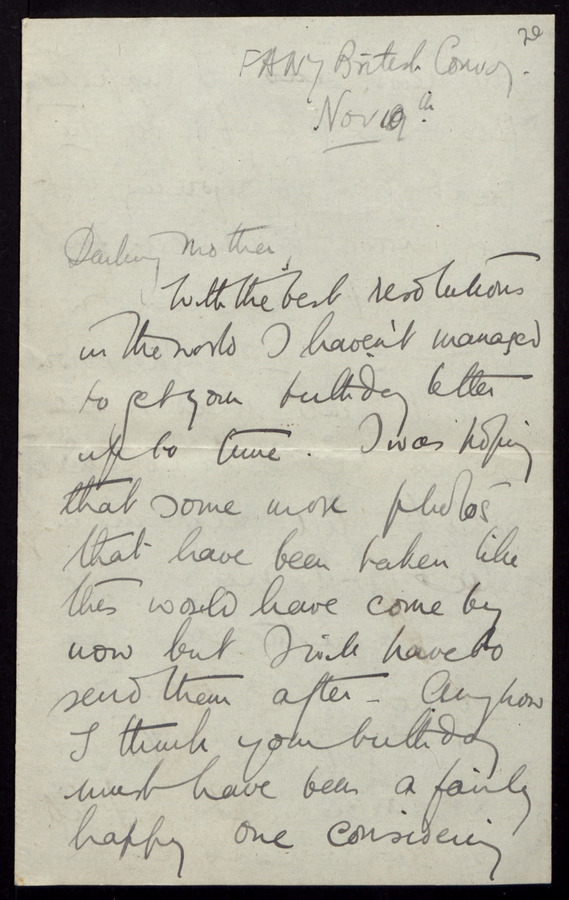 FANY British Convoy.
Nov 19th.
Darling Mother,
With the best resolutions
in the world I haven't managed
to get your birthday letter
up to time. I was hoping
that some more photos
that have been taken like
this would have come by
now but I will have to
send them after - Anyhow
I think your birthday
must have been a fairly
happy one considering